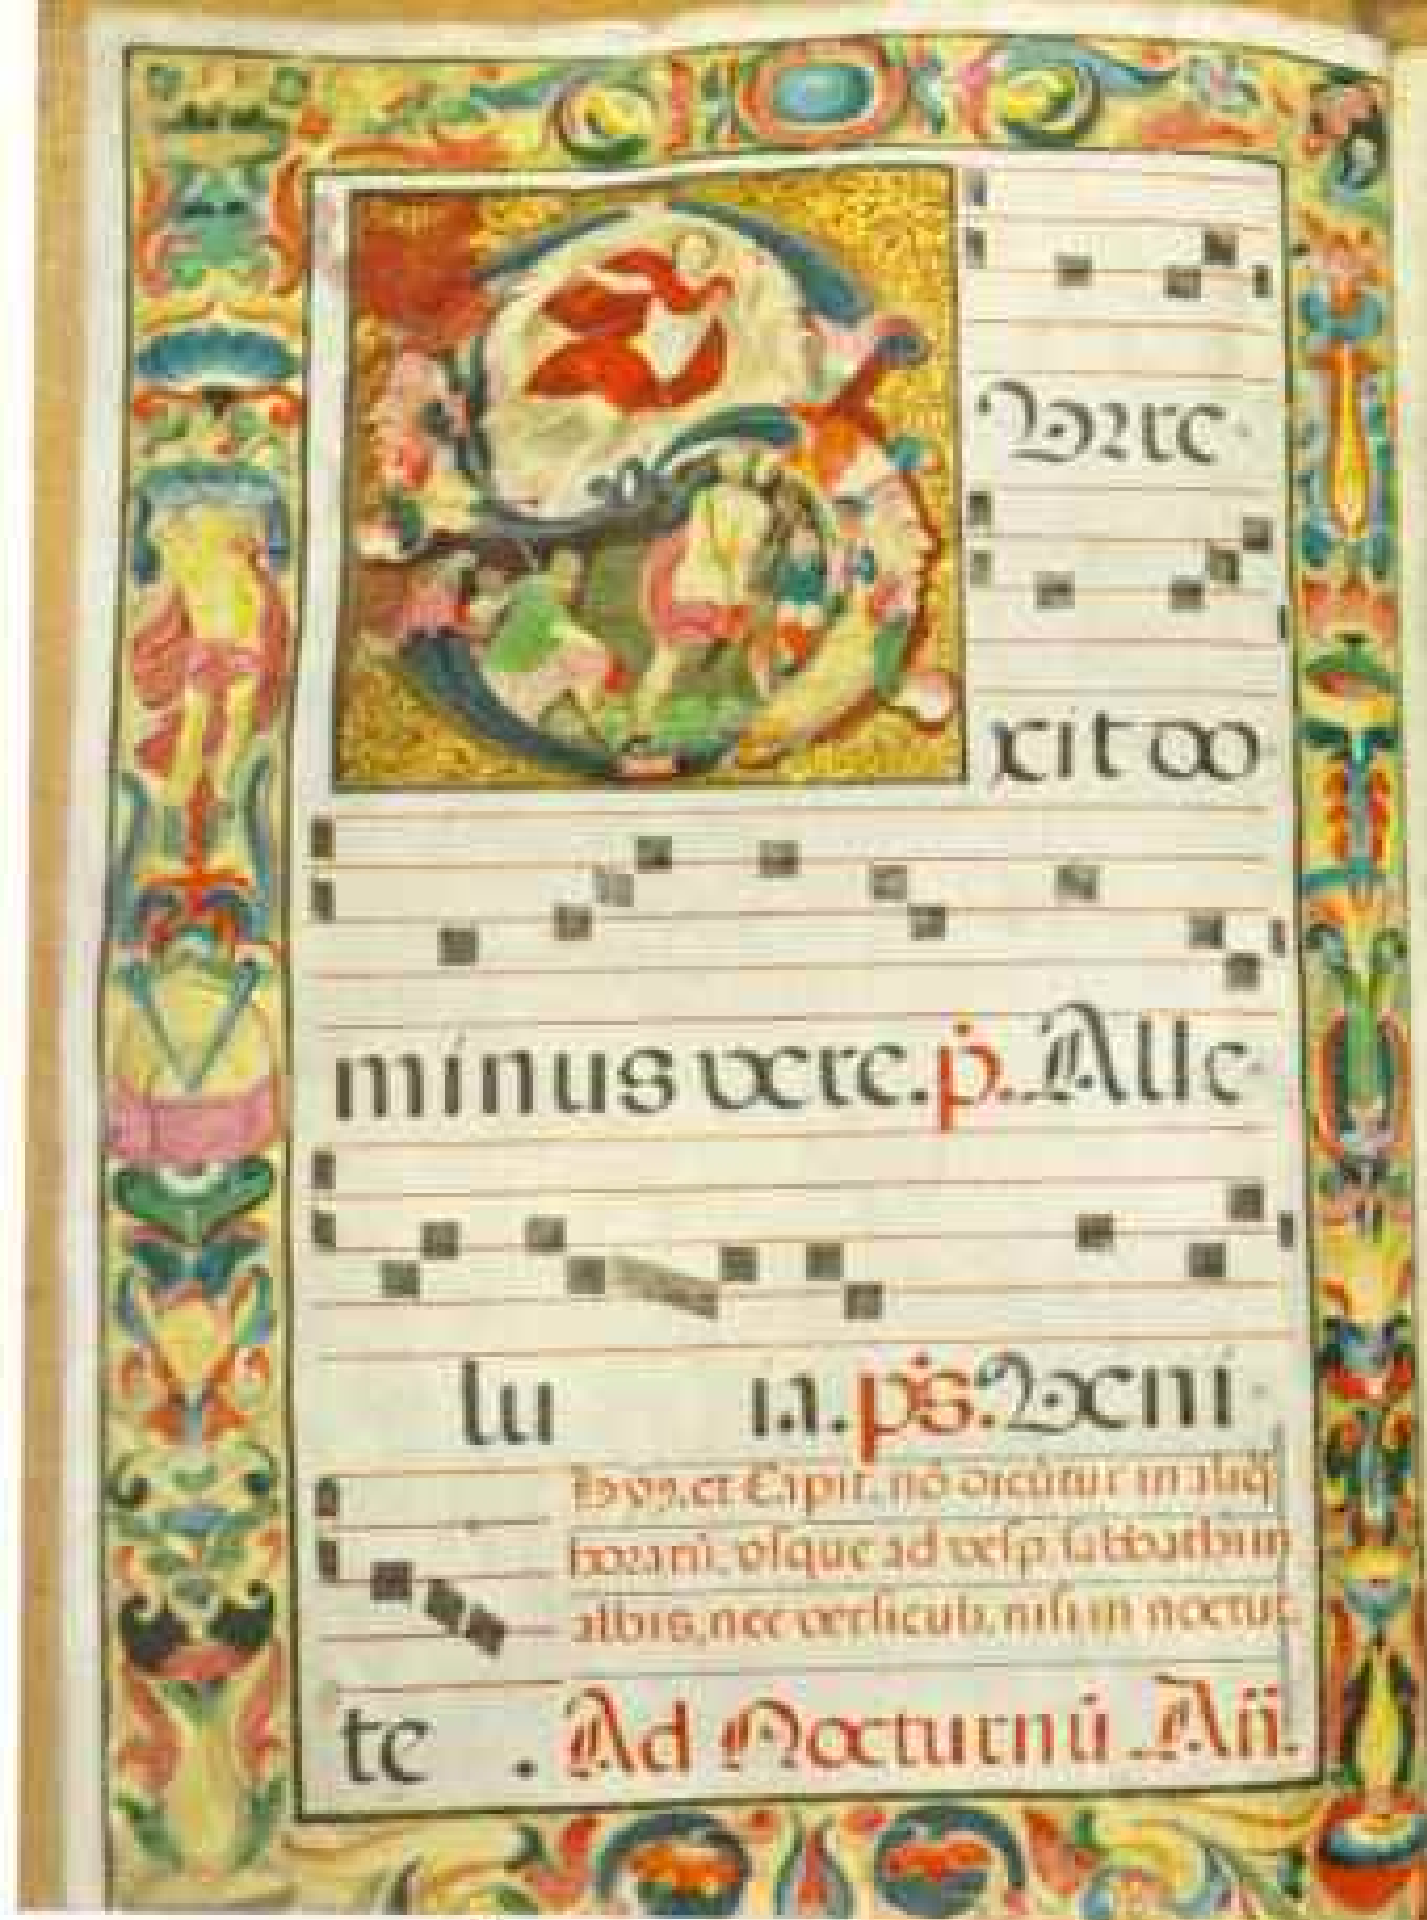 Surre-
xit do-
minus vere. p̃. Alle-
lu ia. ps. Veni-
et Capit. nō dicūtur in aliq̄
horarū, vsque ad vesp. sabbathi in
albis, nec versiculi, nisi in noctur.
te . Ad Nocturnū Añ.